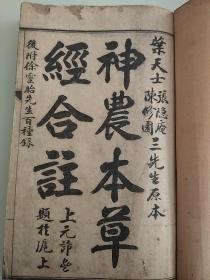 葉天士
張隐庵
陳修園
三先生原本
神農本草
經合註
後附徐靈胎先生百種錄
上元
題於滬上